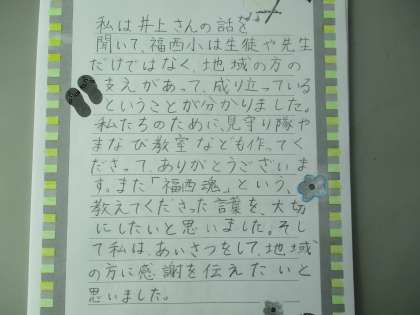 私は井上さんの話を
聞いて、福西小は生徒や先生
だけではなく、地域の方の
支えがあって、成り立っている
ということが分かりました。
私たちのために、見守り隊や
まなび教室なども作ってく
ださって、ありがとうございま
す。また「福西魂」という、
教えてくださった言葉を、大切
にしたいと思いました。そし
て私は、あいさつをして、地域
の方に感謝を伝えたいと
思いました。